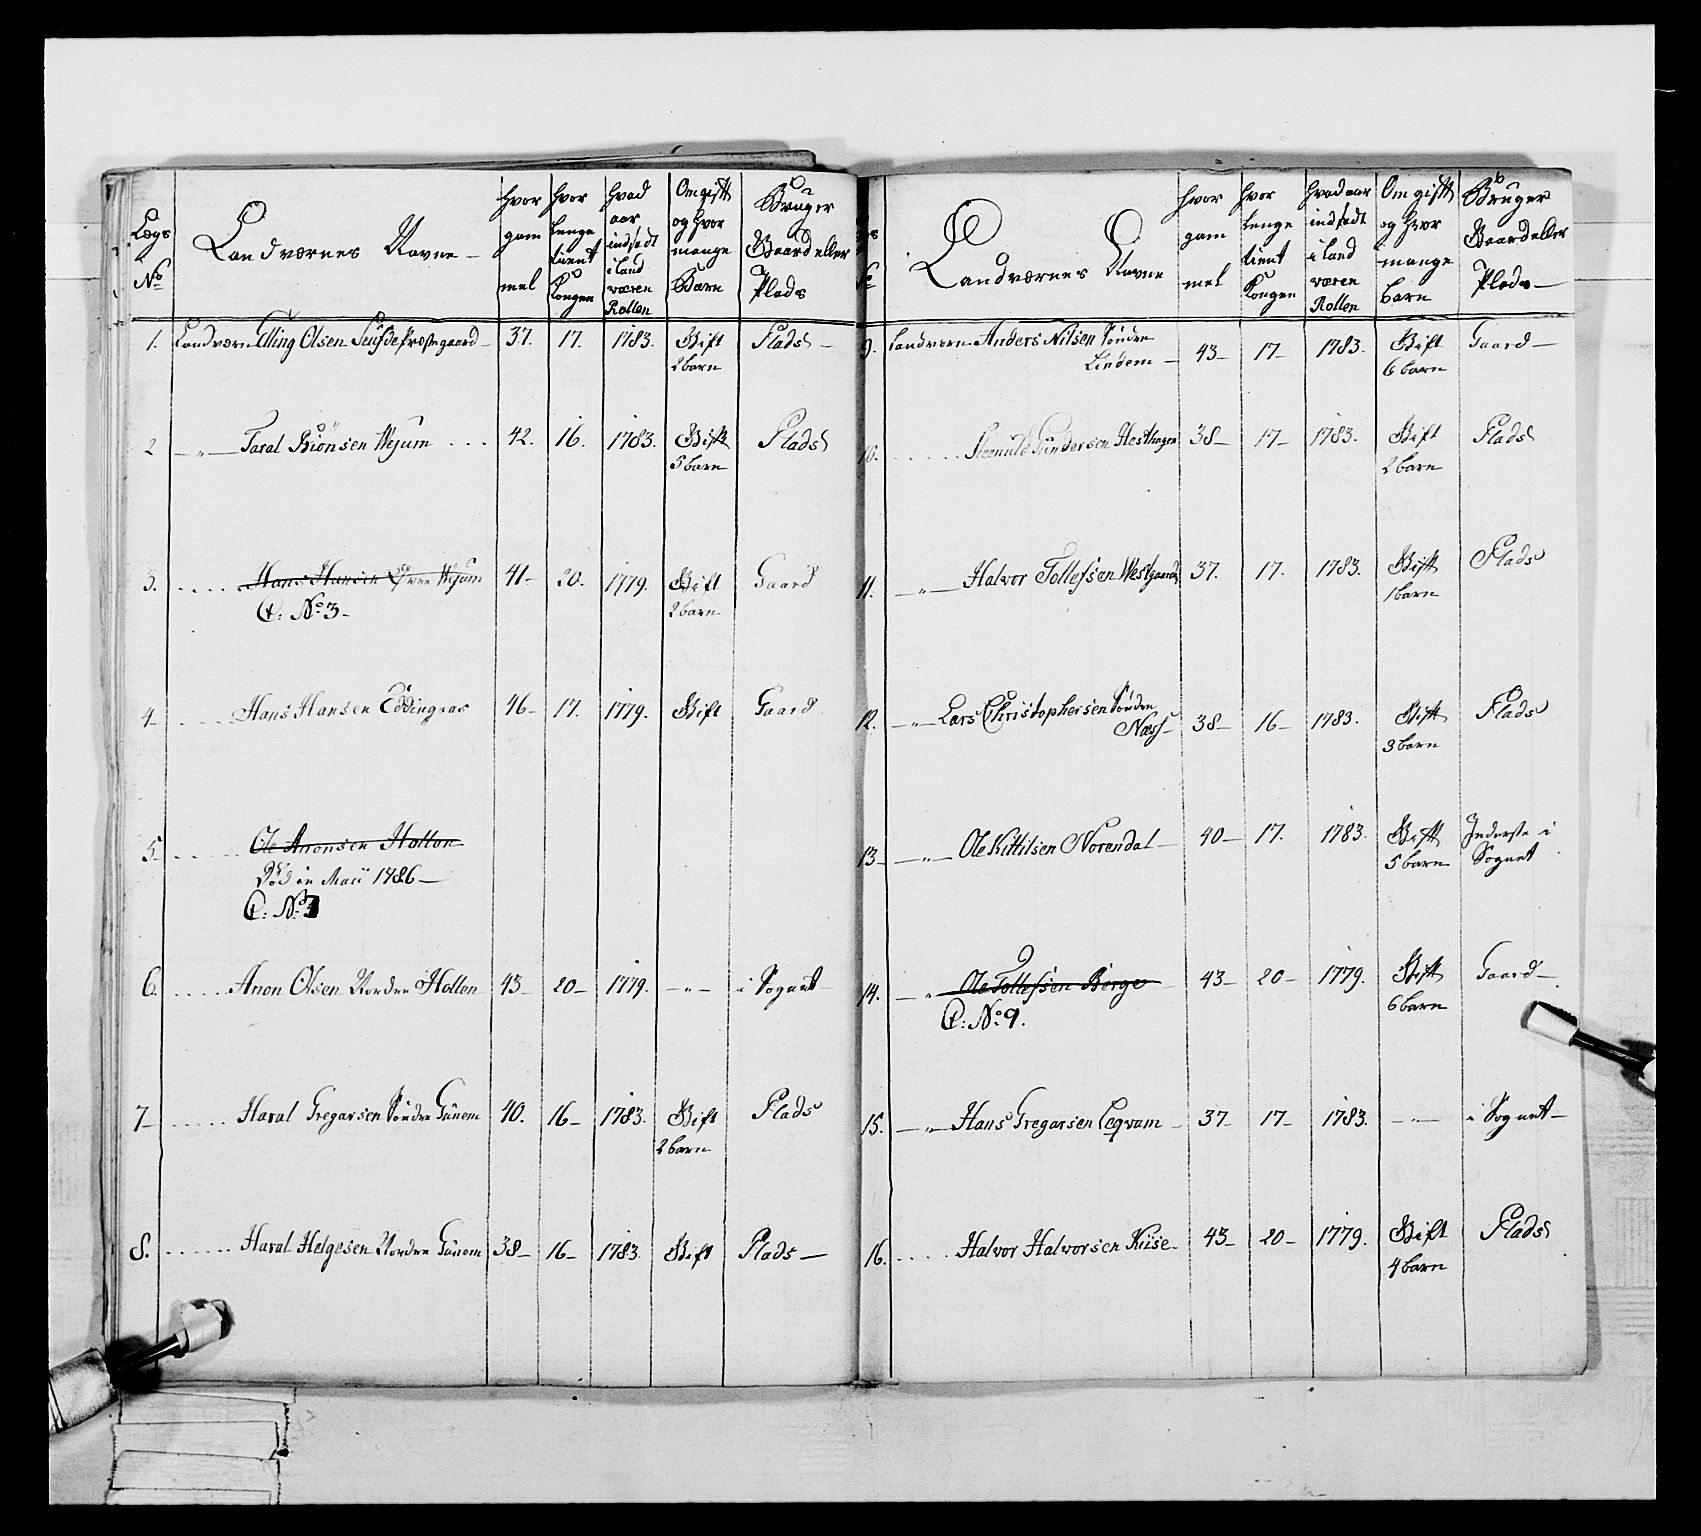 Lægs No | Landværnes Navne | hvor gam mel | hvor lenge tient Kongen | hvad aar indsadt i land væren Rollen | Om gift og hvor mange Barn | Bruger Gaard eller Plads
1. Landværn Elling Olsen Præstegaard | 37. | 17. | 1783. | Gift 2 barn | Plads
2 Taral Biönsen Vejum | 42. | 16. | 1783. | Gift 5 barn | Plads
3. Hans Hansen Övre Vejum | 41 | 20. | 1779. | Gift 2 barn | Gaard
C: No 3
4 Hans Hansen | 46 | 17. | 1779. | Gift | Gaard
5. Ole Anonsen Hollon
Död in Maii 1786
C: No 3
6. Anon Olsen Nordre Hollen | 43 | 20 | 1779. | -"- | i Sognet
7 Haral Gregarsen Söndre Gånem | 40. | 16 | 1783. | Gift 2 barn | Plads
8. Haral Helgesen Nordre Gånem | 38 | 16 | 1783. | Gift | Plads
Landværnes Navne | hvor gam mel | hvor lenge tient Kongen | hvad aar indsadt i land væren Rollen | Om gift og hvor mange barn | Bruger Gaard eller Plads
9. Landværn Anders Nilsen Söndre Lindem | 43 | 17 | 1783. | Gift 6 barn | Gaard
10. Gundersen Hesthagen | 38 | 17 | 1783. | Gift 2 barn | Plads
11. -"- Halvor Tollefsen Westgaard | 37. | 17. | 1783. | Gift 1 barn | Plads
12. -"- Lars Christophersen Söndre Næss | 38 | 16 | 1783. | Gift 3 barn | Plads
13 -"- Ole Kittilsen Norendal | 40 | 17. | 1783. | Gift 5 barn | Inderste i Sognet
14. -"- Ole Tollefsen Berge | 43 | 20 | 1779. | Gift 6 barn | Gaard
C: No 9.
15. -"- Hans Gregarsen Leqvam | 37 | 17 | 1783. | -"- | i Sognet
16. Halvor Halvorsen Kiise | 43 | 20 | 1779. | Gift 4 barn | Plads